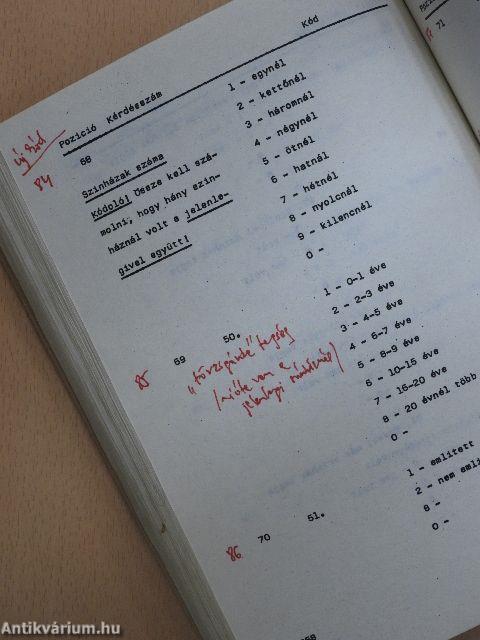 új kód
Pozició Kérdésszám Kód
84 68
Szinházak száma
Kódoló! Össze kell szá-
molni, hogy hány szin-
háznál volt a jelenle-
givel együtt!
1 - egynél
2 - kettőnél
3 - háromnél
4 - négynél
5 - ötnél
6 - hatnál
7 - hétnél
8 - nyolcnél
9 - kilencnél
0 -
85 69 50.
"törzsgárda" tagság
(mióta van a
jelenlegi
1 - 0-1 éve
2 - 2-3 éve
3 - 4-5 éve
4 - 6-7 éve
5 - 8-9 éve
6 - 10-15 éve
7 - 16-20 éve
8 - 20 évnél több
0 -
86 70 51.
1 - emlitett
2 - nem emli
8 -
0 -
71
Antikvárium.hu